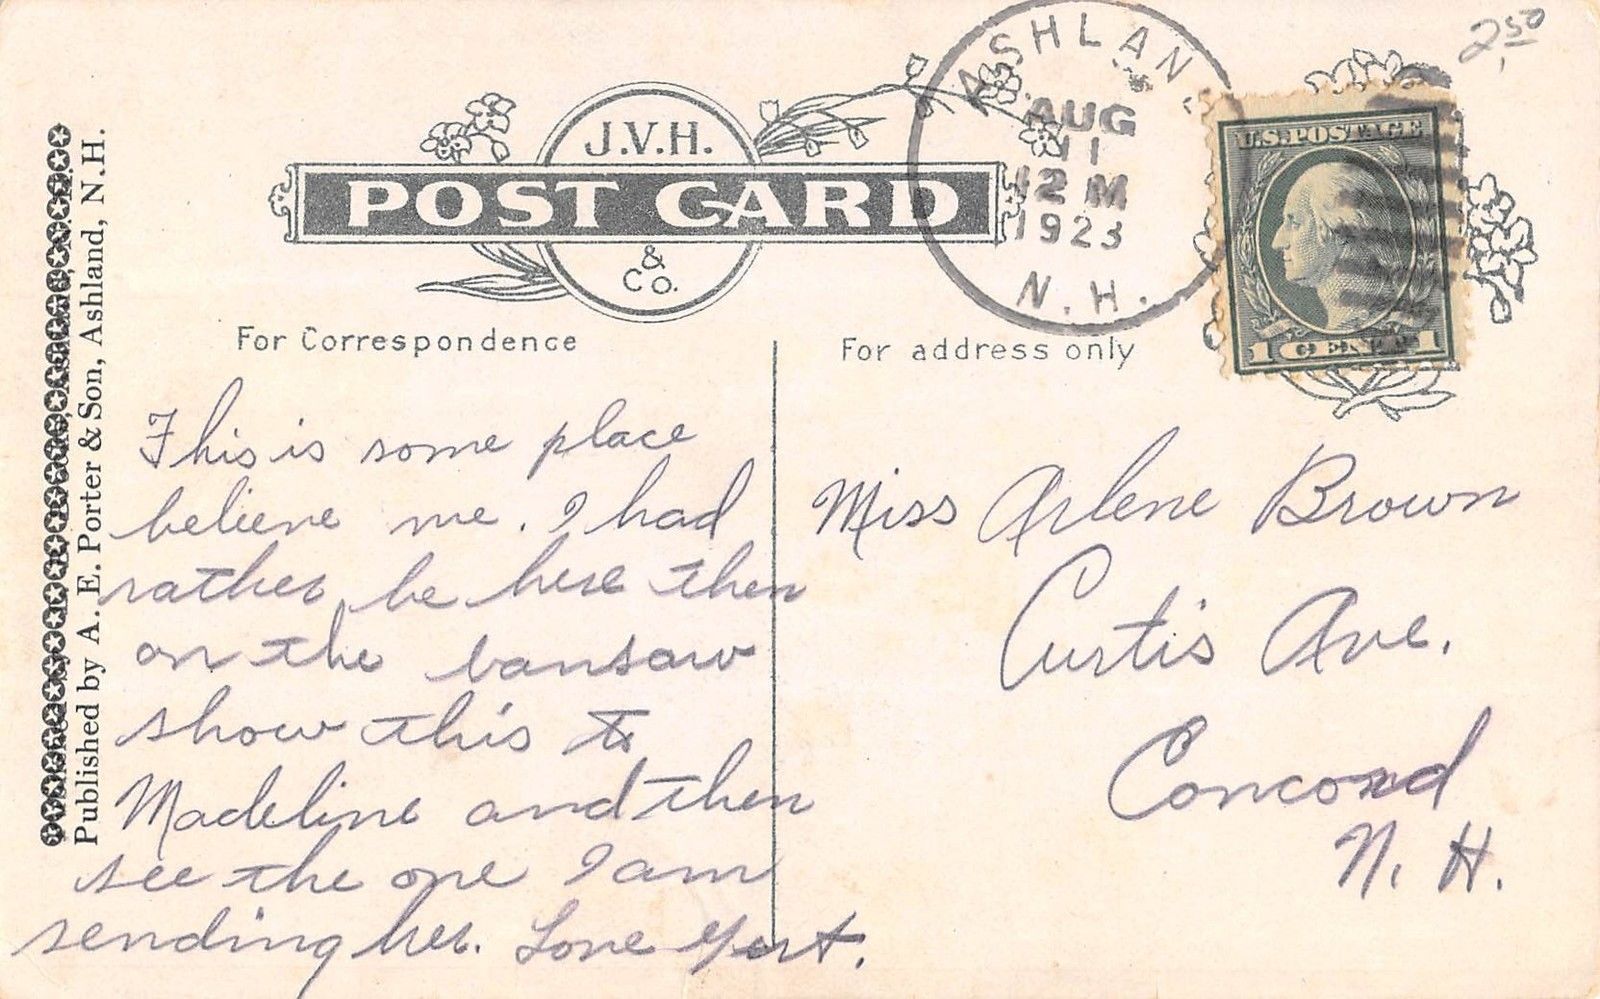 2.50
ASHLAN
AUG
11
12 M
1923
N.H.
U.S. POSTAGE
1 CENT 1
J.V.H.
POST CARD
&
Co.
Published by A. E. Porter & Son, Ashland, N.H.
For Correspondence
For address only
This is some place
believe me. I had
rather be here then
on the bansaw
show this to
Madeline and then
see the one I am
sending her. Love Gert.
Miss Arlene Brown
Curtis Ave.
Concord
N. H.